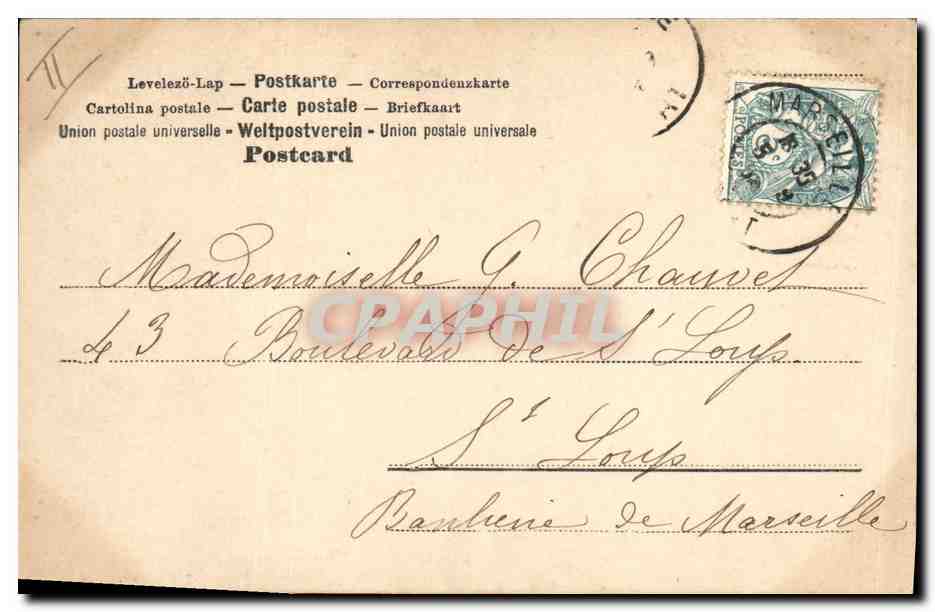 II
Levelezö-Lap — Postkarte — Correspondenzkarte
Cartolina postale — Carte postale — Briefkaart
Union postale universelle - Weltpostverein - Union postale universale
Postcard
MARSEILLE
POSTES
Mademoiselle G. Chauvet
43 Boulevard de St Loup.
St Loup
Banlieue de Marseille
CPAPHIL